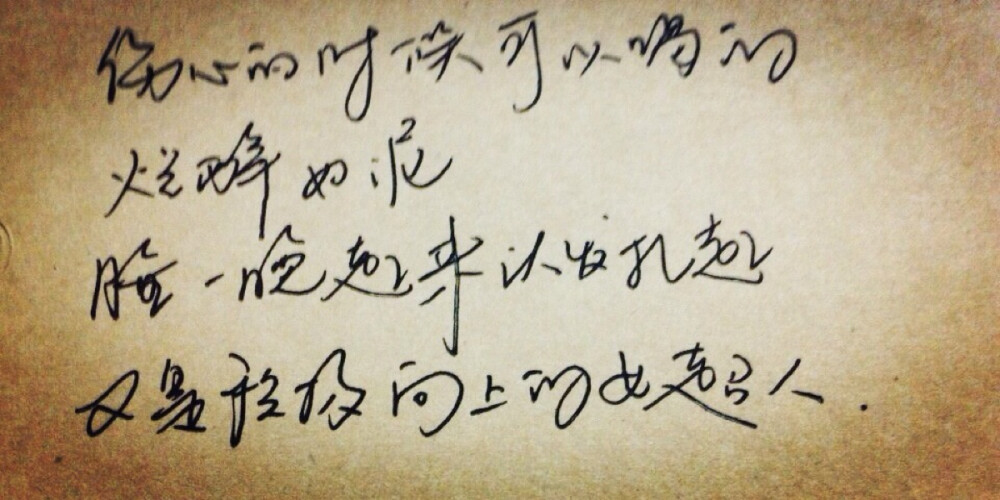 伤心的时候可以喝的
烂醉如泥
睡一晚起来头发扎起
又是积极向上的女超人.